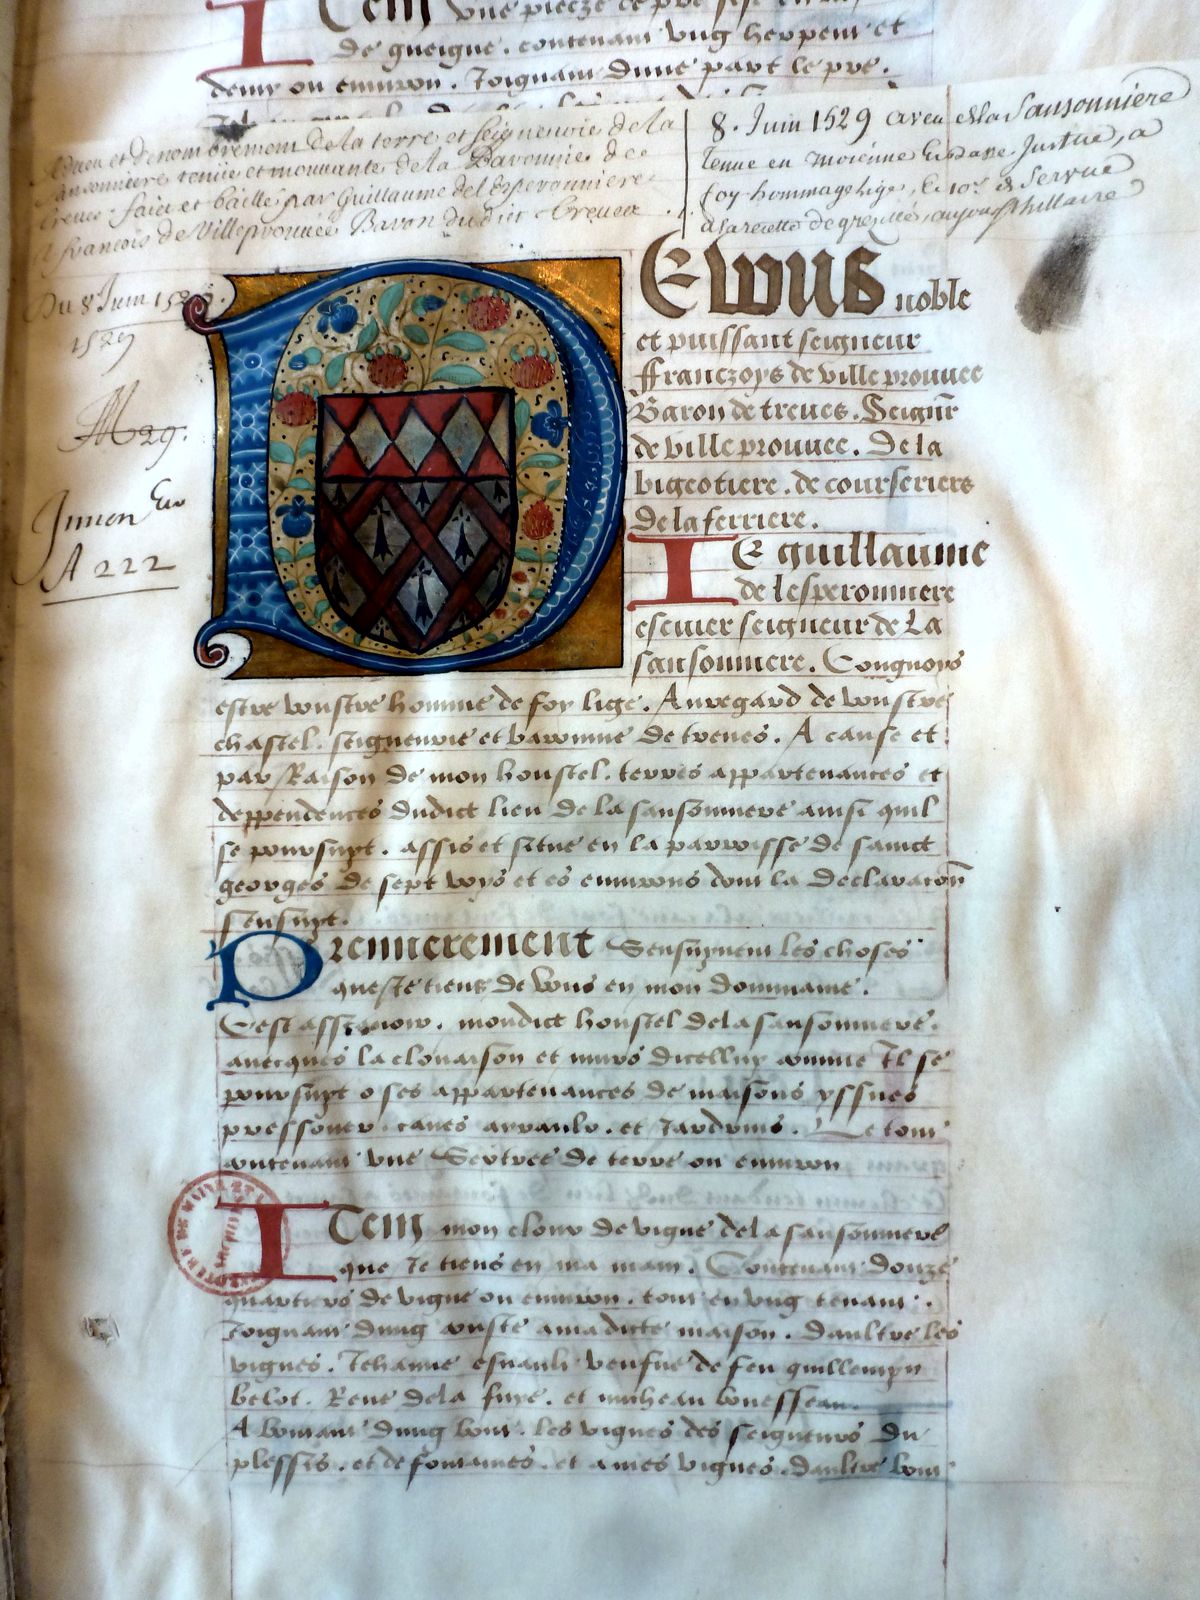 Item une piecze de pre
de gneigne. contenant ung herpent et
demy ou environ. Joignant dune part le pre.
Adveu et denombrement de la terre et Seigneurie de la
Sansonniere tenue et mouvante de la Baronnie de
Treves. faict et baillé par Guillaume de l'Esperonniere
A francois de Villeprouvée Baron dudict Treves
8. Juin 1529 aveu de la Sansonniere
tenue en moienne et basse Justice, a
foy hommage lige, de service
a la recette de grezillé
Du 8 Juin 1529
1529
M 29.
A 222
DE vous noble
et puissant seigneur
ffranczoys de ville prouvee
Baron de treves. Seignr
de ville prouvee. De la
bigeotiere. de courserieres
De la ferriere.
IE guillaume
de lesperonniere
escuier seigneur de La
sansonniere. Congnoys
estre voustre homme de foy lige. Au regard de voustre
chastel. seigneurie et baronnie de treves. A cause et
par Raison de mon houstel. terres appartenances et
deppendences dudict lieu de la sansonniere ainsi quil
se poursuyt. assis et situe en la parroisse de sainct
georges de sept voys et es environs dont la declaracon
sensuyt.
Premierement Sensuyvent les choses
que Je tiens de vous en mon dommaine.
Cest asszavoir. mondict houstel de la sansonniere.
avecques la clouaison et murs dicelluy comme Il se
poursuyt o ses appartenances de maisons yssues
pressouer. caves et Jardrins. Le tout
contenant une Sextree de terre ou environ
ITem mon cloux de vigne de la sansonniere
que Je tiens en ma main. Contenant douze
quartiers de vigne ou environ. tout en ung tenant.
Joignant dung couste a madicte maison. Daultre les
vignes. Jehanne esnault veufve de feu guillemyn
belot. Rene de la fuye. et micheau bonesseau.
Aboutant dung bout. les vignes des seigneurs du
plessis. et de fontaines. et a mes vignes. daultre bout